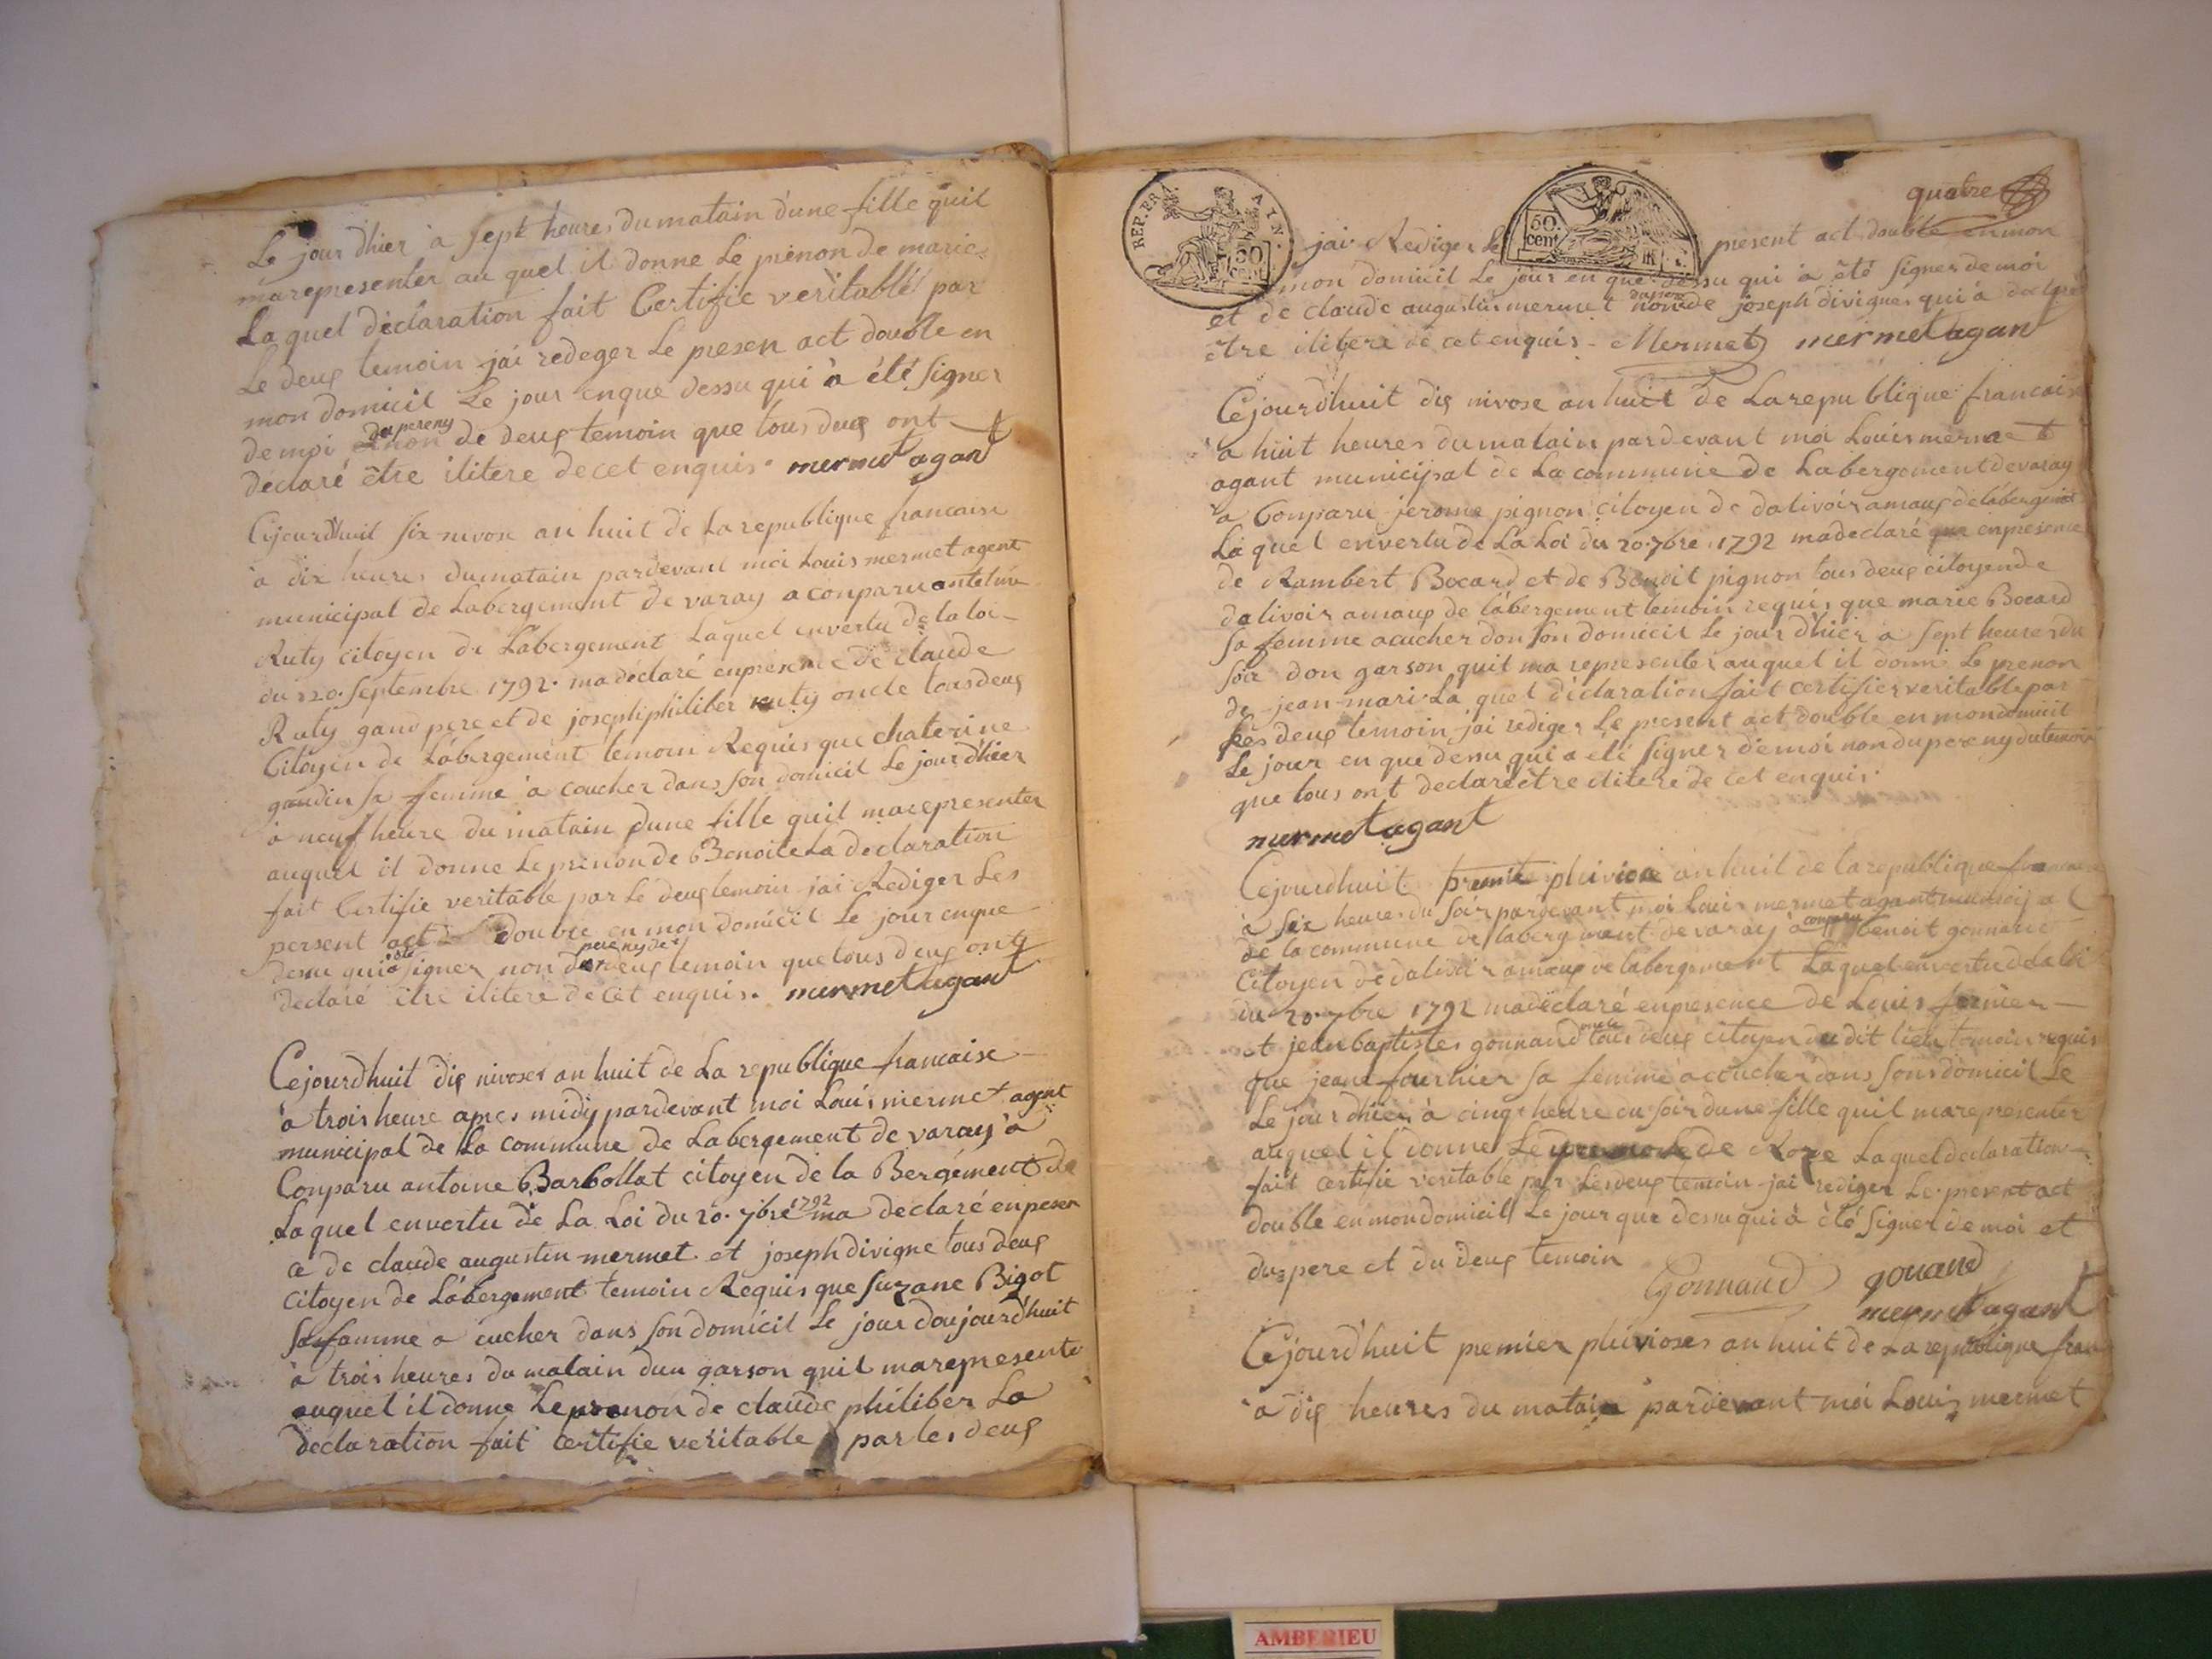 Le jour dhier a sept heures du matain d'une fille quil
marepresenter au quel il donne Le prenon de marie
La quel déclaration fait Certifie veritablé par
Le deux temoin jai redeger Le presen act double en
mon domicil Le jour enque dessu qui à été signer
du pereny
de moi non de deux temoin que tous deux ont
déclaré être ilitere de cet enquis. mermet agant
Cejourdhuil six nivose an huit de La republique francaise
à dix heures dumatain pardevant moi Louis mermet agent
municipal de Labergement de varay a conparu antelme
Ruty citoyen de Labergement Laquel envertu de la loi
du 20. Septembre 1792. ma déclaré enpresence de claude
Ruty gand pere et de joseph philiber ruty oncle tous deux
Citoyen de Labergement temoin Requis que chaterine
gaudin sa femme à coucher dans son domicil Le jour dhier
à neuf heure du matain dune fille quil marepresenter
auquel il donne Le prenon de Benoite La declaration
fait Certifie veritable par Le deux temoin jai Rediger Les
persent act double en mon domicil Le jour enque
été pereny de
dessu qui à signer non deux temoin que tous deux ont
declaré être ilitere de cet enquis. mermet agant
Cejourdhuit dix nivoses an huit de La republique francaise
à trois heure apres midy pardevant moi Louis mermet agent
municipal de La commune de Labergement de varay à
Conparu antoine Barbollat citoyen de la Bergément de
1792
Laquel envertu de La Loi du 20. 7bre ma declaré enpesen
ce de claude augustin mermet et joseph divigne tous deux
citoyen de Labergement temoin Requis que suzane Bigot
sa famme a cucher dans son domicil Le jour doujourdhuit
à trois heures du matain dun garson quil marepresente
auquel il donne Le prenon de claude philiber La
declaration fait certifie veritable par les deux
quatre
REP. FRA. AYN.
50 cent
50. cent
jai Rediger Le present act double en mon
mon domicil Le jour en que dessu qui à été signer de moi
du pere
et de claude augustin mermet non de joseph divignes qui à declaré
être ilitere de cet enquis - Mermet mermet agant
Cejourdhuit dix nivose an huit de La republique francaise
à huit heures dumatain pardevant moi Louis mermet
agant municipal de La commune de Labergement devaray
a Conparu jerome pignon citoyen de dalivoir amaux de labergement
La quel envertu de La Loi du 20. 7bre 1792 madeclaré que enpresence
de Rambert Bocard et de Benoit pignon tous deux citoyen de
dalivoir amaux de labergement temoin requis que marie Bocard
sa femme acucher don son domicil Le jour dhier a sept heures du
soir don garson quil ma representer auquel il donne Le prenon
de jean mari La quel déclaration fait certifier veritable par
Les deux temoin jai rediger Le present act double en mondomicil
Le jour en que dessu qui a été signer de moi non du pere ny dutemoin
que tous ont declaré être ilitere de cet enquis.
mermet agant
Cejourdhuit premie pluviose an huit de la republique francaise
à six heures du soir pardevant moi Louis mermet agant municipal
conparu
de la commune de labergement de varay à benoit gonnand
Citoyen de dalivoir amaux de labergement Laquel envertu de La loi
du 20. 7bre 1792 madéclaré enpresence de Louis fornier
oncle
et jean baptistes gonnand tous deux citoyen du dit lieu temoin requis
que jeane fournier sa femme a coucher dans sons domicil Le
Le jour dhier à cinq heure du soir dune fille quil marepresenter
auquel il donne Le prenon de Roze La quel declaration
fait certifie veritable par Les deux temoin jai rediger Le present act
double en mon domicil Le jour que dessu qui à été signer de moi et
du pere et du deux temoin
Gonnand gonand
mermet agant
Cejourd'huit premier pluvioses an huit de La republique fran
à dix heures du matain pardevant moi Louis mermet
AMBERIEU